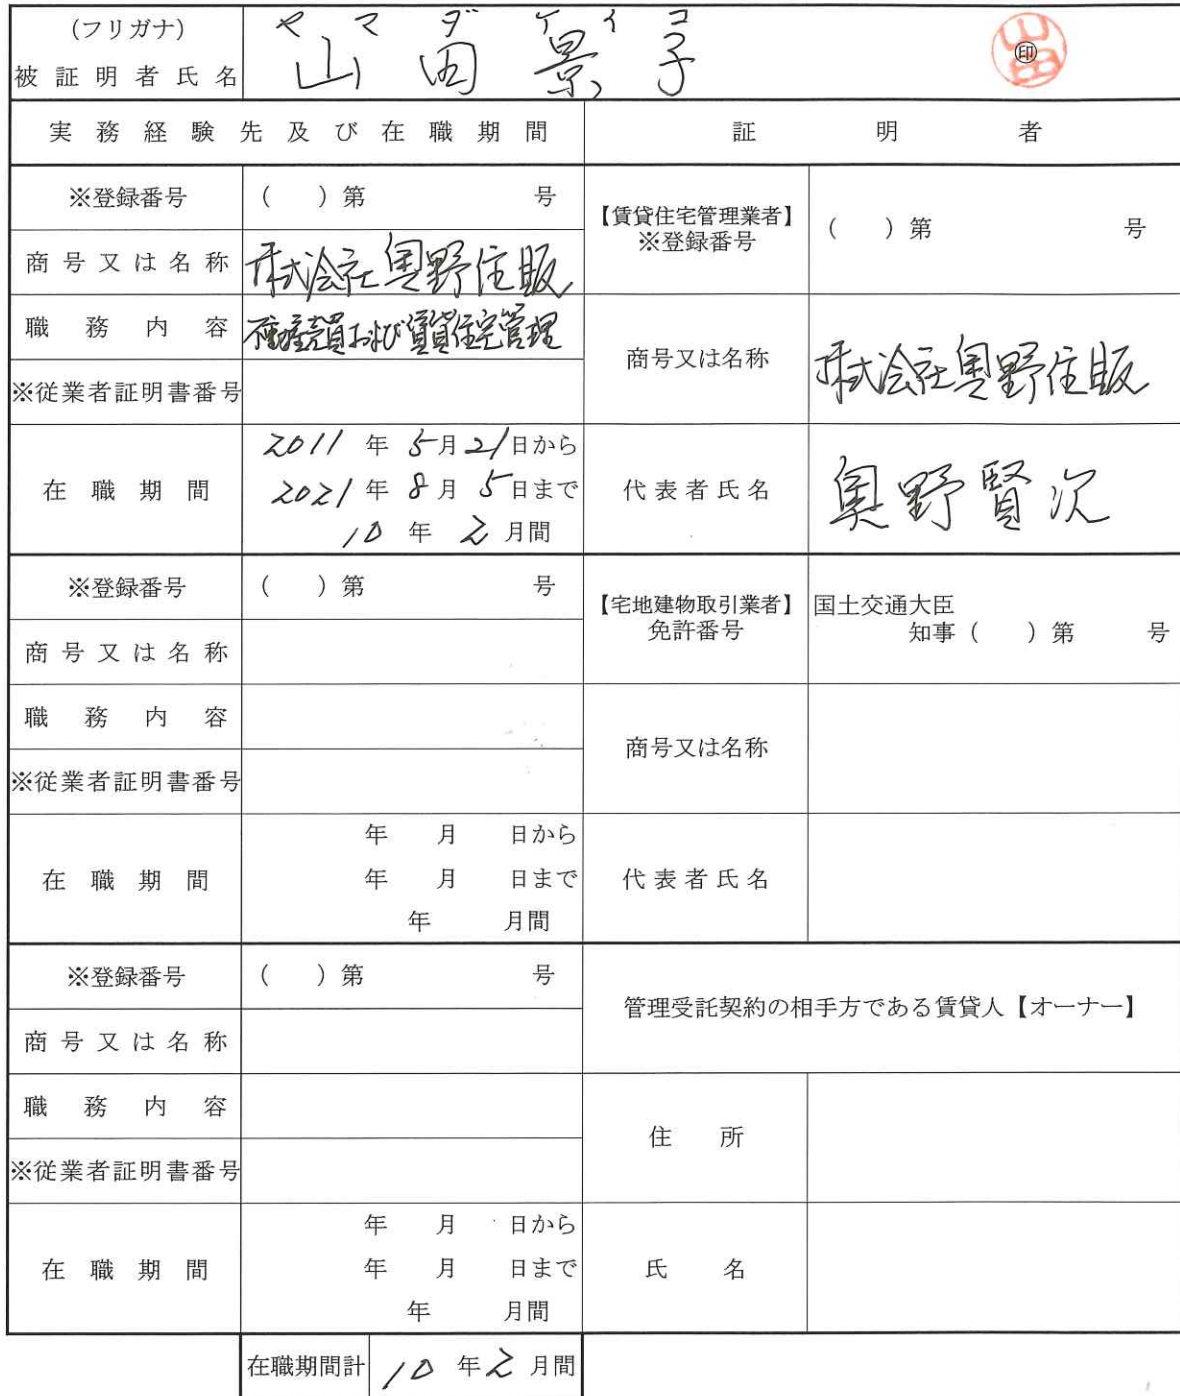 (フリガナ) ヤマダケイコ
被証明者氏名 山田景子 ㊞
実務経験先及び在職期間 証明者
※登録番号 ( )第 号
商号又は名称 株式会社奥野住販
職務内容 不動産売買および賃貸住宅管理
※従業者証明書番号
在職期間 2011年5月21日から
2021年8月5日まで
10年2月間
【賃貸住宅管理業者】
※登録番号 ( )第 号
商号又は名称 株式会社奥野住販
代表者氏名 奥野賢次
※登録番号 ( )第 号
商号又は名称
職務内容
※従業者証明書番号
在職期間 年 月 日から
年 月 日まで
年 月間
【宅地建物取引業者】 国土交通大臣
免許番号 知事( )第 号
商号又は名称
代表者氏名
※登録番号 ( )第 号
商号又は名称
職務内容
※従業者証明書番号
在職期間 年 月 日から
年 月 日まで
年 月間
管理受託契約の相手方である賃貸人【オーナー】
住所
氏名
在職期間計 10年2月間